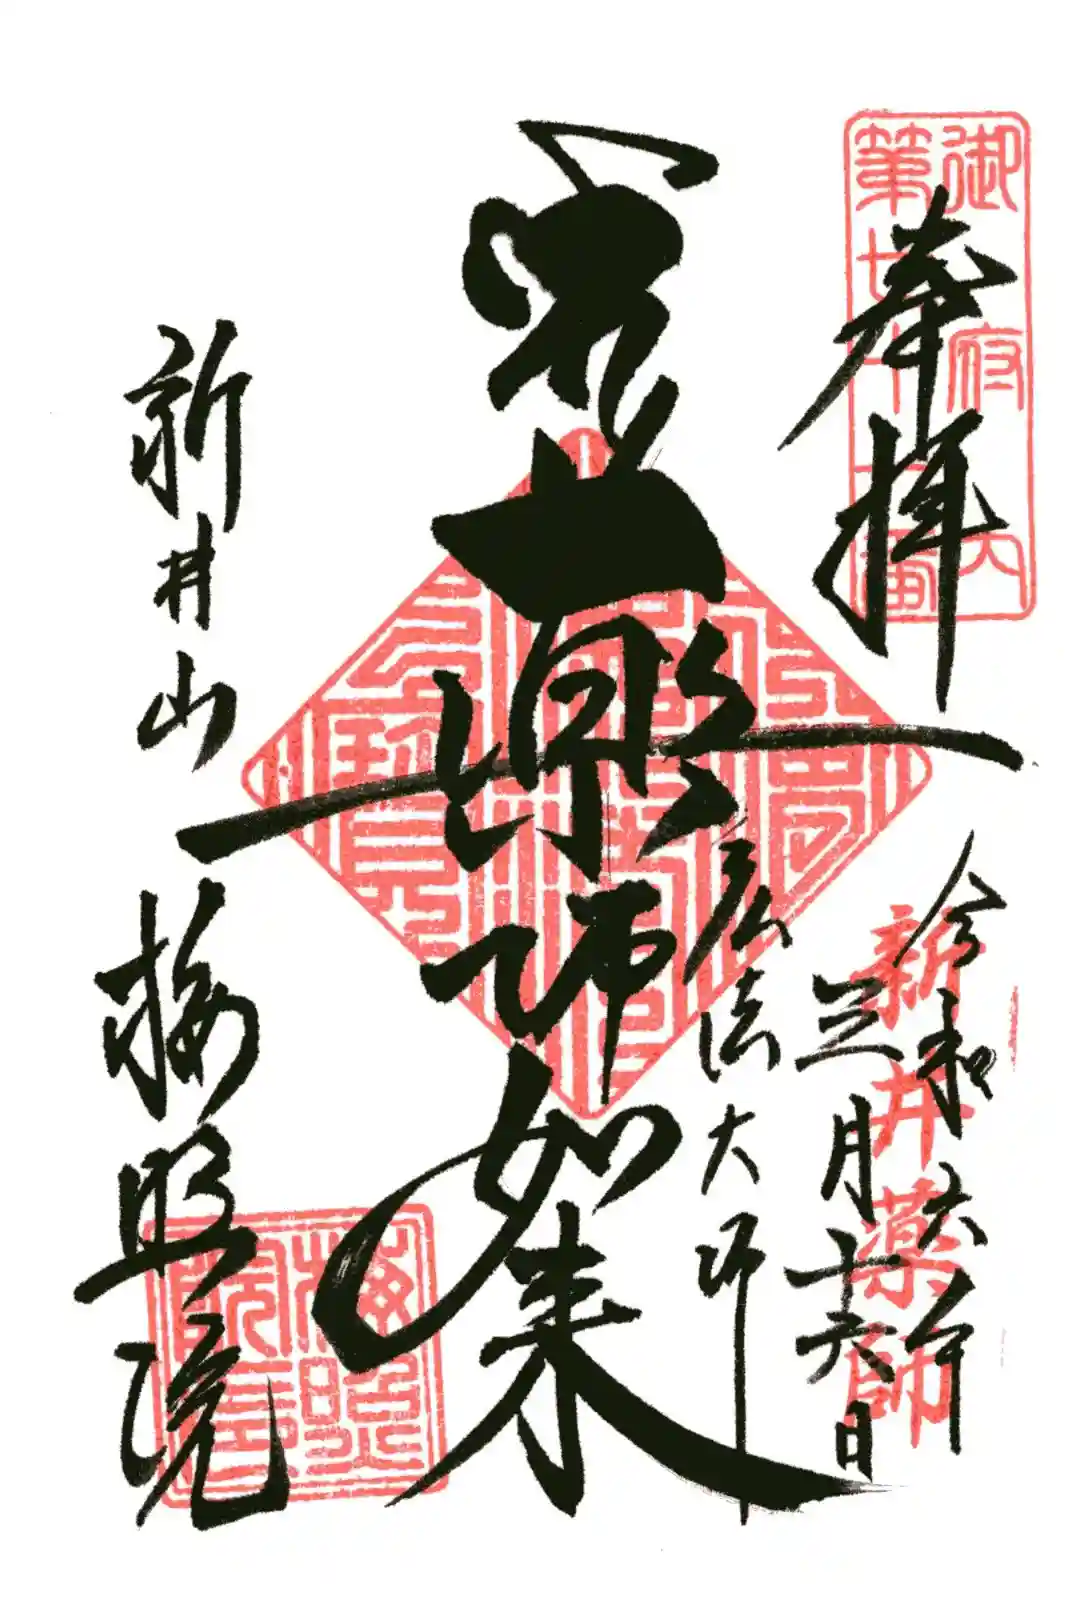 御府内
第七十一番
奉拝
令和六年
三月十六日
新井薬師
弘法大師
薬師如来
新井山 梅照院